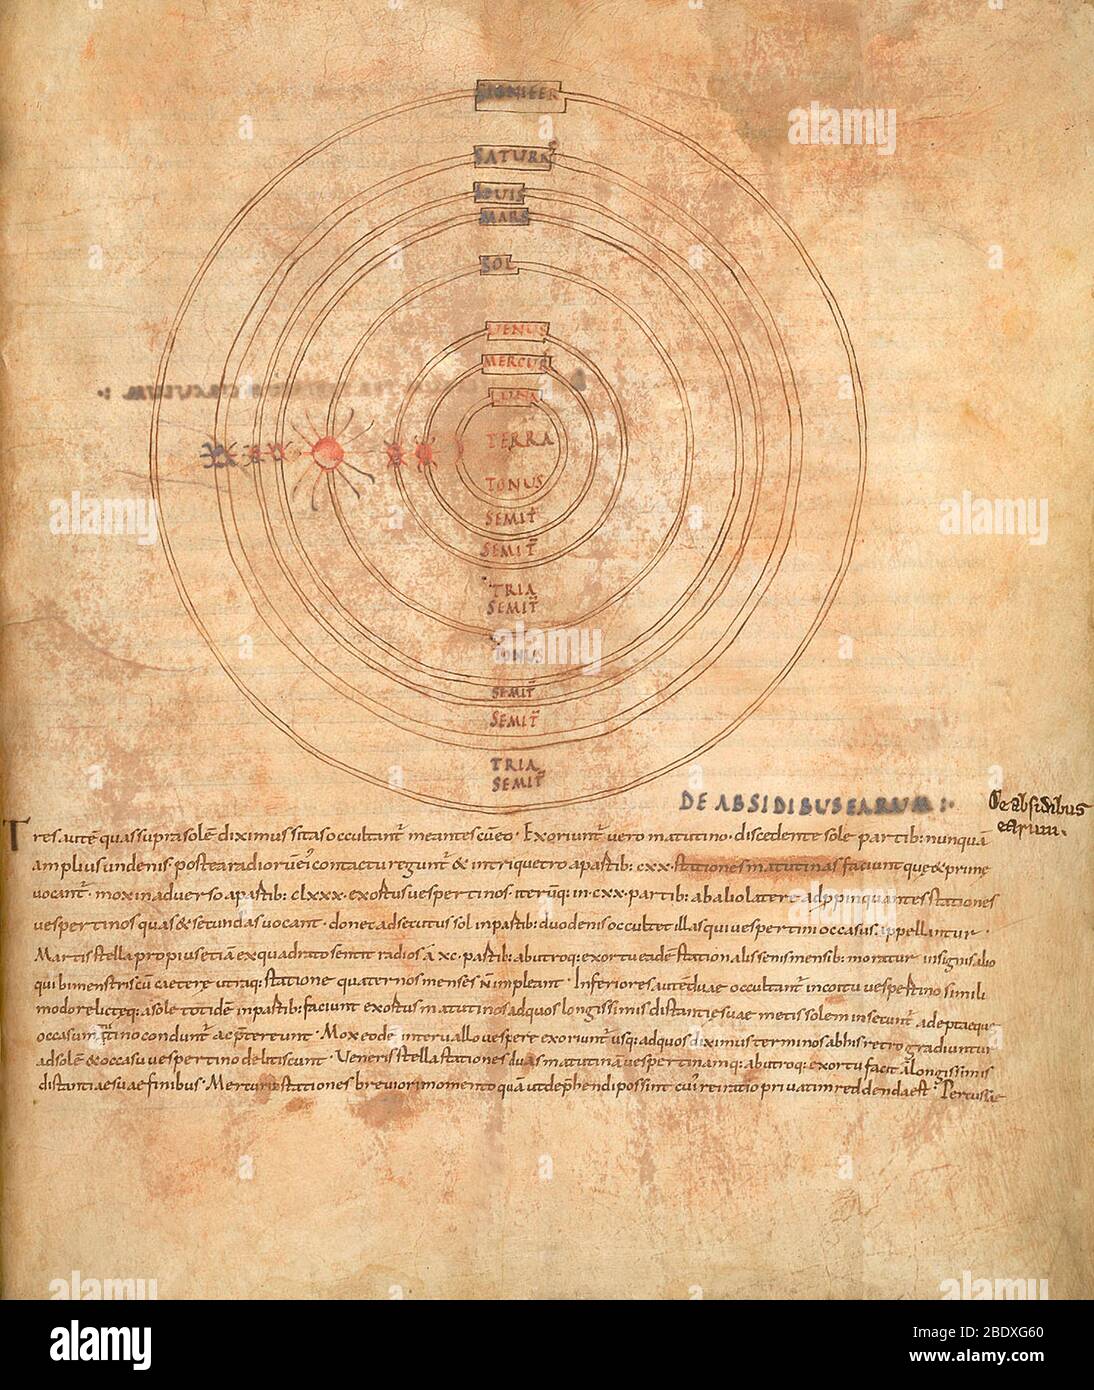 SIGNIFER
SATURN
IOUIS
MARS
SOL
UENUS
MERCUR
LUNA
TERRA
TONUS
SEMIT
SEMIT
TRIA
SEMIT
TONUS
SEMIT
SEMIT
TRIA
SEMIT
DE ABSIDIBUS EARUM :·
De absidibus
earum.
Tres. autē quas supra solē diximus sitas occultant meantes cū eo. Exoriunt vero matutino. discedente sole partib: nunquā
amplius undenis. postea radiorū ei contactu regunt & in triquetro a partib: cxx. stationes matutinas faciunt que & prime
vocant. mox in adverso a partib: clxxx. exortus vespertinos. iterūq: in cxx. partib: ab alio latere adppinquantes stationes
vespertinos quas & secundas vocant. donet adsecutus sol in partib: duodenis occultet illas qui vespertini occasus appellantur.
Martis stella propius etiā ex quadrato sentit radios ā xc. partib: ab utroq: exortu eadē stationalis senis mensib: moratur in signis alio
qui bimenstris cū caetere utraq: statione quaternos menses n̄ impleant. Inferiores autē duae occultant in coitu vespertino simili
modo relicteq: a sole totidē in partib: faciunt exortus matutinos adquos longissimis distantie suae metis solem insecunt adeptaeque
occasū matutino conduntur ac pretereunt. Mox eodē intervallo vespere exoriuntur usq: adquos diximus terminos ab his retro gradiuntur
ad solē & occasu vespertino delitiscunt. Veneris stella stationes duas matutinā vespertinamq: ab utroq: exortu facit a longissimis
distantiae suae finibus. Mercurio stationes breviori momento quā ut deprehendi possint cui re ratio privatim reddenda est. Percussae
alamy
Image ID: 2BDXG60
www.alamy.com